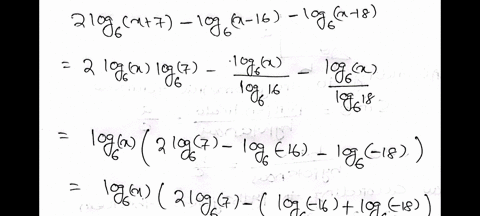 2log₆(x+7) − log₆(x−16) − log₆(x−18)
= 2 log₆(x) log₆(7) − log₆(x)/log₆16 − log₆(x)/log₆18
= log₆(x) (2log₆(7) − log₆(−16) − log₆(−18))
= log₆(x) (2log₆(7) − (log₆(−16) + log₆(−18)